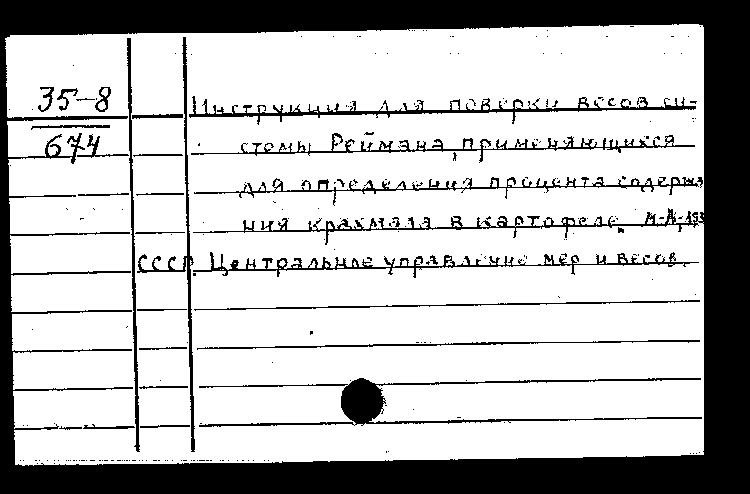 35-8
674
Инструкция для поверки весов си-
стемы Реймана, применяющихся
для определения процента содержа
ния крахмала в картофеле. М-Л, 193
СССР. Центральное управление мер и весов.